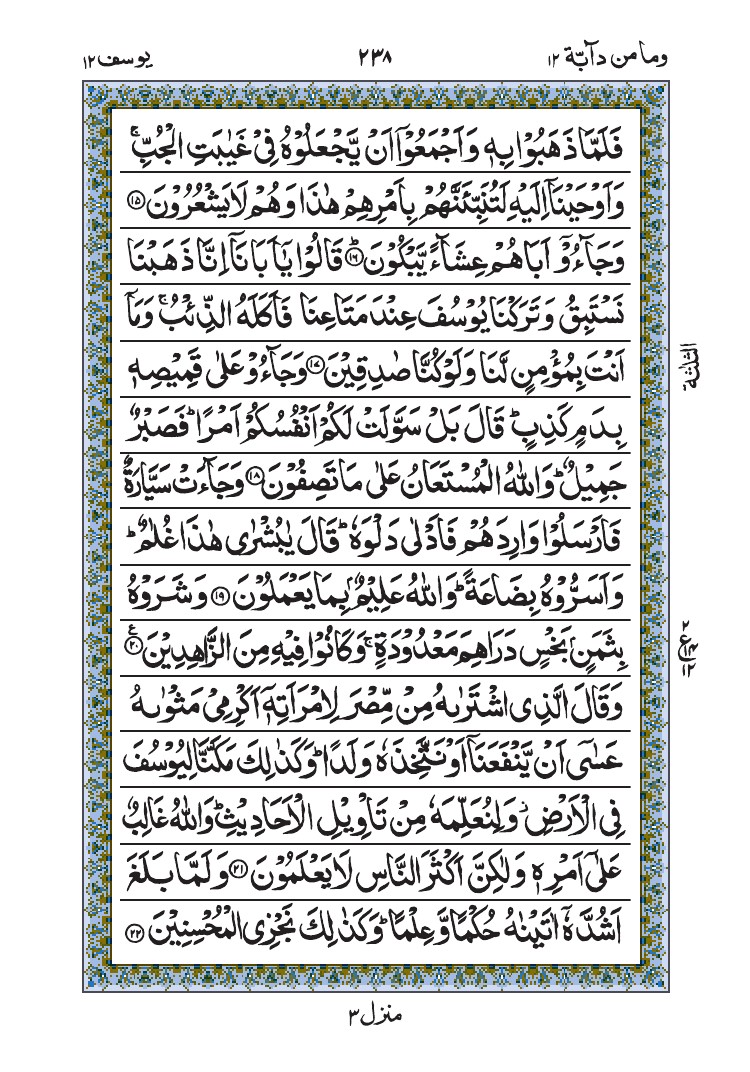 وما من دآبّة ۱۲
۲۳۸
یوسف ۱۲
فَلَمَّا ذَهَبُوْا بِهٖ وَ اَجْمَعُوْۤا اَنْ یَّجْعَلُوْهُ فِیْ غَیٰبَتِ الْجُبِّ ۚ
وَ اَوْحَیْنَاۤ اِلَیْهِ لَتُنَبِّئَنَّهُمْ بِاَمْرِهِمْ هٰذَا وَ هُمْ لَا یَشْعُرُوْنَ ﴿۱۵﴾
وَ جَآءُوْۤ اَبَاهُمْ عِشَآءً یَّبْكُوْنَ ﴿ؕ۱۶﴾ قَالُوْا یٰۤاَبَانَاۤ اِنَّا ذَهَبْنَا
نَسْتَبِقُ وَ تَرَكْنَا یُوْسُفَ عِنْدَ مَتَاعِنَا فَاَكَلَهُ الذِّئْبُ ۚ وَ مَاۤ
اَنْتَ بِمُؤْمِنٍ لَّنَا وَ لَوْ كُنَّا صٰدِقِیْنَ ﴿۱۷﴾ وَ جَآءُوْ عَلٰی قَمِیْصِهٖ
بِدَمٍ كَذِبٍ ؕ قَالَ بَلْ سَوَّلَتْ لَكُمْ اَنْفُسُكُمْ اَمْرًا ؕ فَصَبْرٌ
جَمِیْلٌ ؕ وَ اللّٰهُ الْمُسْتَعَانُ عَلٰی مَا تَصِفُوْنَ ﴿۱۸﴾ وَ جَآءَتْ سَیَّارَةٌ
فَاَرْسَلُوْا وَارِدَهُمْ فَاَدْلٰی دَلْوَهٗ ؕ قَالَ یٰبُشْرٰی هٰذَا غُلٰمٌ ؕ
وَ اَسَرُّوْهُ بِضَاعَةً ؕ وَ اللّٰهُ عَلِیْمٌۢ بِمَا یَعْمَلُوْنَ ﴿۱۹﴾ وَ شَرَوْهُ
بِثَمَنٍۭ بَخْسٍ دَرَاهِمَ مَعْدُوْدَةٍ ۚ وَ كَانُوْا فِیْهِ مِنَ الزَّاهِدِیْنَ ﴿۲۰﴾ ع
وَ قَالَ الَّذِی اشْتَرٰىهُ مِنْ مِّصْرَ لِامْرَاَتِهٖۤ اَكْرِمِیْ مَثْوٰىهُ
عَسٰۤی اَنْ یَّنْفَعَنَاۤ اَوْ نَتَّخِذَهٗ وَلَدًا ؕ وَ كَذٰلِكَ مَكَّنَّا لِیُوْسُفَ
فِی الْاَرْضِ ۫ وَ لِنُعَلِّمَهٗ مِنْ تَاْوِیْلِ الْاَحَادِیْثِ ؕ وَ اللّٰهُ غَالِبٌ
عَلٰۤی اَمْرِهٖ وَ لٰكِنَّ اَكْثَرَ النَّاسِ لَا یَعْلَمُوْنَ ﴿۲۱﴾ وَ لَمَّا بَلَغَ
اَشُدَّهٗۤ اٰتَیْنٰهُ حُكْمًا وَّ عِلْمًا ؕ وَ كَذٰلِكَ نَجْزِی الْمُحْسِنِیْنَ ﴿۲۲﴾
الثلثة
۲
ع ۱۴
۱۲
منزل ۳